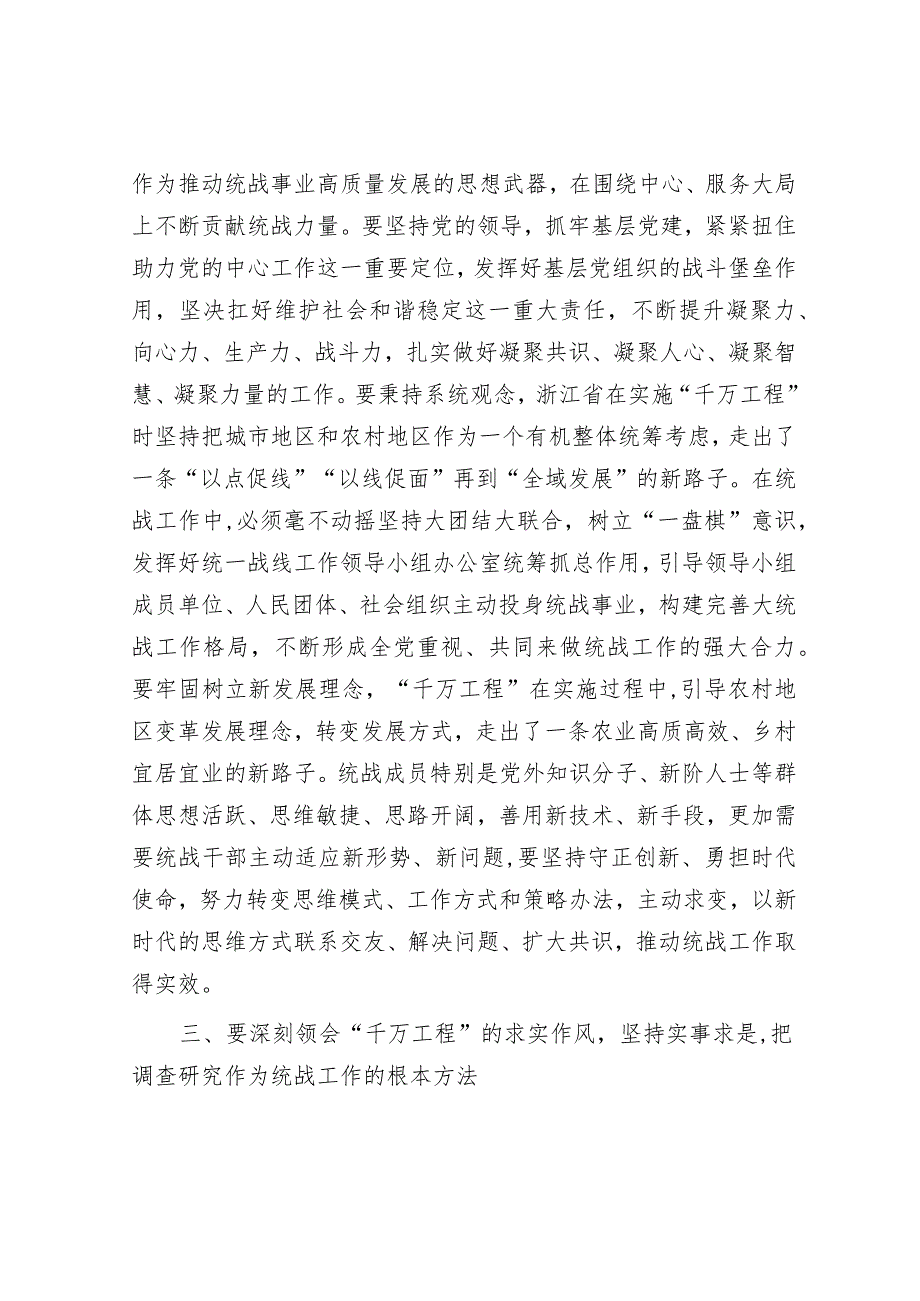 作为推动统战事业高质量发展的思想武器，在围绕中心、服务大局
上不断贡献统战力量。要坚持党的领导，抓牢基层党建，紧紧扭住
助力党的中心工作这一重要定位，发挥好基层党组织的战斗堡垒作
用，坚决扛好维护社会和谐稳定这一重大责任，不断提升凝聚力、
向心力、生产力、战斗力，扎实做好凝聚共识、凝聚人心、凝聚智
慧、凝聚力量的工作。要秉持系统观念，浙江省在实施“千万工程”
时坚持把城市地区和农村地区作为一个有机整体统筹考虑，走出了
一条“以点促线”“以线促面”再到“全域发展”的新路子。在统
战工作中,必须毫不动摇坚持大团结大联合，树立“一盘棋”意识，
发挥好统一战线工作领导小组办公室统筹抓总作用，引导领导小组
成员单位、人民团体、社会组织主动投身统战事业，构建完善大统
战工作格局，不断形成全党重视、共同来做统战工作的强大合力。
要牢固树立新发展理念，“千万工程”在实施过程中,引导农村地
区变革发展理念，转变发展方式，走出了一条农业高质高效、乡村
宜居宜业的新路子。统战成员特别是党外知识分子、新阶人士等群
体思想活跃、思维敏捷、思路开阔，善用新技术、新手段，更加需
要统战干部主动适应新形势、新问题,要坚持守正创新、勇担时代
使命，努力转变思维模式、工作方式和策略办法，主动求变，以新
时代的思维方式联系交友、解决问题、扩大共识，推动统战工作取
得实效。
三、要深刻领会“千万工程”的求实作风，坚持实事求是,把
调查研究作为统战工作的根本方法